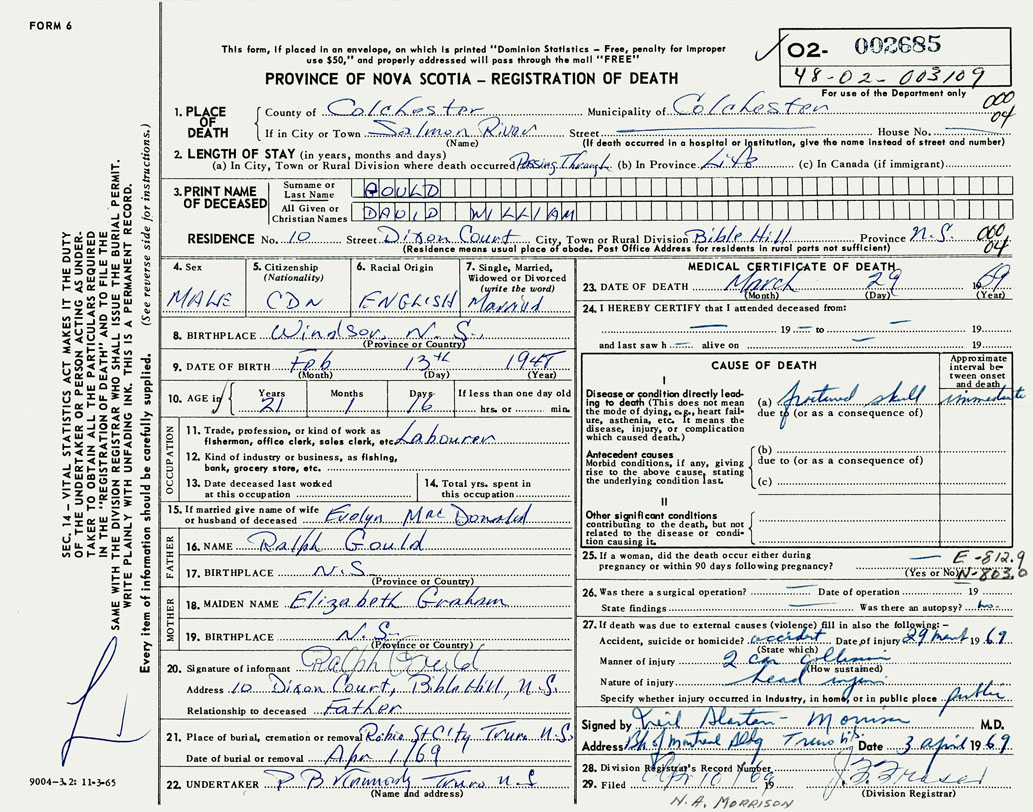 FORM 6
This form, if placed in an envelope, on which is printed "Dominion Statistics – Free, penalty for improper
use $50," and properly addressed will pass through the mail "FREE"
PROVINCE OF NOVA SCOTIA – REGISTRATION OF DEATH
O2- 002685
48-02-003109
For use of the Department only
000
04
1. PLACE OF DEATH
County of Colchester Municipality of Colchester
If in City or Town Salmon River Street House No.
(Name) (If death occurred in a hospital or institution, give the name instead of street and number)
2. LENGTH OF STAY (in years, months and days)
(a) In City, Town or Rural Division where death occurred Passing Through (b) In Province Life (c) In Canada (if immigrant)
3. PRINT NAME OF DECEASED
Surname or Last Name GOULD
All Given or Christian Names DAVID WILLIAM
RESIDENCE No. 10 Street Dixon Court City, Town or Rural Division Bible Hill Province N.S.
(Residence means usual place of abode. Post Office Address for residents in rural parts not sufficient)
000
04
4. Sex
MALE
5. Citizenship
(Nationality)
CDN
6. Racial Origin
ENGLISH
7. Single, Married, Widowed or Divorced
(write the word)
Married
8. BIRTHPLACE Windsor, N.S.,
(Province or Country)
9. DATE OF BIRTH Feb 13th 1948
(Month) (Day) (Year)
10. AGE in Years Months Days If less than one day old
21 1 16 hrs. or min.
OCCUPATION
11. Trade, profession, or kind of work as
fisherman, office clerk, sales clerk, etc. Labourer
12. Kind of industry or business, as fishing,
bank, grocery store, etc.
13. Date deceased last worked
at this occupation
14. Total yrs. spent in
this occupation
15. If married give name of wife
or husband of deceased Evelyn MacDonald
FATHER
16. NAME Ralph Gould
17. BIRTHPLACE N.S.
(Province or Country)
MOTHER
18. MAIDEN NAME Elizabeth Graham
19. BIRTHPLACE N.S.
(Province or Country)
20. Signature of informant Ralph Gould
Address 10 Dixon Court, Bible Hill, N.S.
Relationship to deceased Father
21. Place of burial, cremation or removal Robie St City Truro N.S.
Date of burial or removal Apr 1/69
22. UNDERTAKER Truro N.S
(Name and address)
MEDICAL CERTIFICATE OF DEATH
23. DATE OF DEATH March 29 1969
(Month) (Day) (Year)
24. I HEREBY CERTIFY that I attended deceased from:
19 to 19
and last saw h alive on 19
CAUSE OF DEATH
Approximate interval between onset and death
I
Disease or condition directly leading to death (This does not mean the mode of dying, e.g., heart failure, asthenia, etc. It means the disease, injury, or complication which caused death.)
(a) fractured skull immediate
due to (or as a consequence of)
Antecedent causes
Morbid conditions, if any, giving rise to the above cause, stating the underlying condition last.
(b)
due to (or as a consequence of)
(c)
II
Other significant conditions
contributing to the death, but not related to the disease or condition causing it.
25. If a woman, did the death occur either during
pregnancy or within 90 days following pregnancy?
(Yes or No)
E-812.9
N-803.0
26. Was there a surgical operation? Date of operation 19
State findings Was there an autopsy? no.
27. If death was due to external causes (violence) fill in also the following:–
Accident, suicide or homicide? accident Date of injury 29 March 1969
(State which)
Manner of injury 2 car collision
(How sustained)
Nature of injury head injury
Specify whether injury occurred in industry, in home, or in public place public
Signed by Neil Morrison M.D.
Address Bk of Montreal Bldg Truro N.S. Date 3 April 1969
28. Division Registrar's Record Number
29. Filed Apr 10/69 19 J. F. Fraser
(Division Registrar)
N.A. MORRISON
9004-3.2: 11-3-65
SEC. 14 – VITAL STATISTICS ACT MAKES IT THE DUTY
OF THE UNDERTAKER OR PERSON ACTING AS UNDER-
TAKER TO OBTAIN ALL THE PARTICULARS REQUIRED
IN THE "REGISTRATION OF DEATH" AND TO FILE THE
SAME WITH THE DIVISION REGISTRAR WHO SHALL ISSUE THE BURIAL PERMIT.
WRITE PLAINLY WITH UNFADING INK. THIS IS A PERMANENT RECORD.
Every item of information should be carefully supplied. (See reverse side for instructions.)